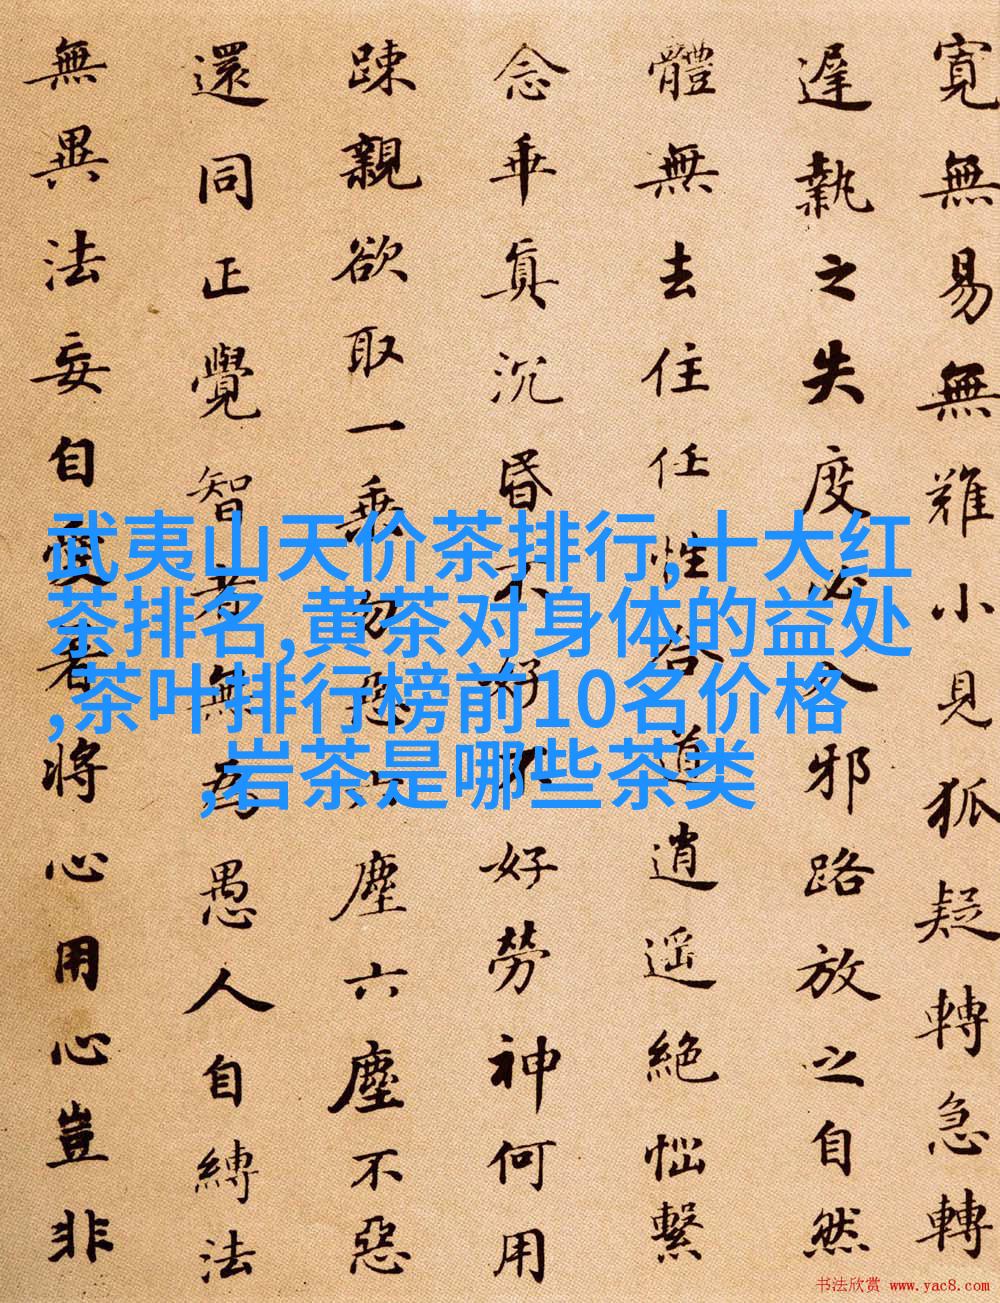 寛無易無難小見狐疑轉急轉
遲執之失度必入邪路放之自然
體無去住任性合道逍遥絶惱繫
念乖真沉昏不好不好勞神何用
踈親欲取一乘勿惡六塵六塵不惡
還同正覺智者無為愚人自縛法
無異法妄自愛著將心用心豈非
武夷山天价茶排行,十大红
茶排名,黄茶对身体的益处
,茶叶排行榜前10名价格
,岩茶是哪些茶类
书法欣赏 www.yac8.com